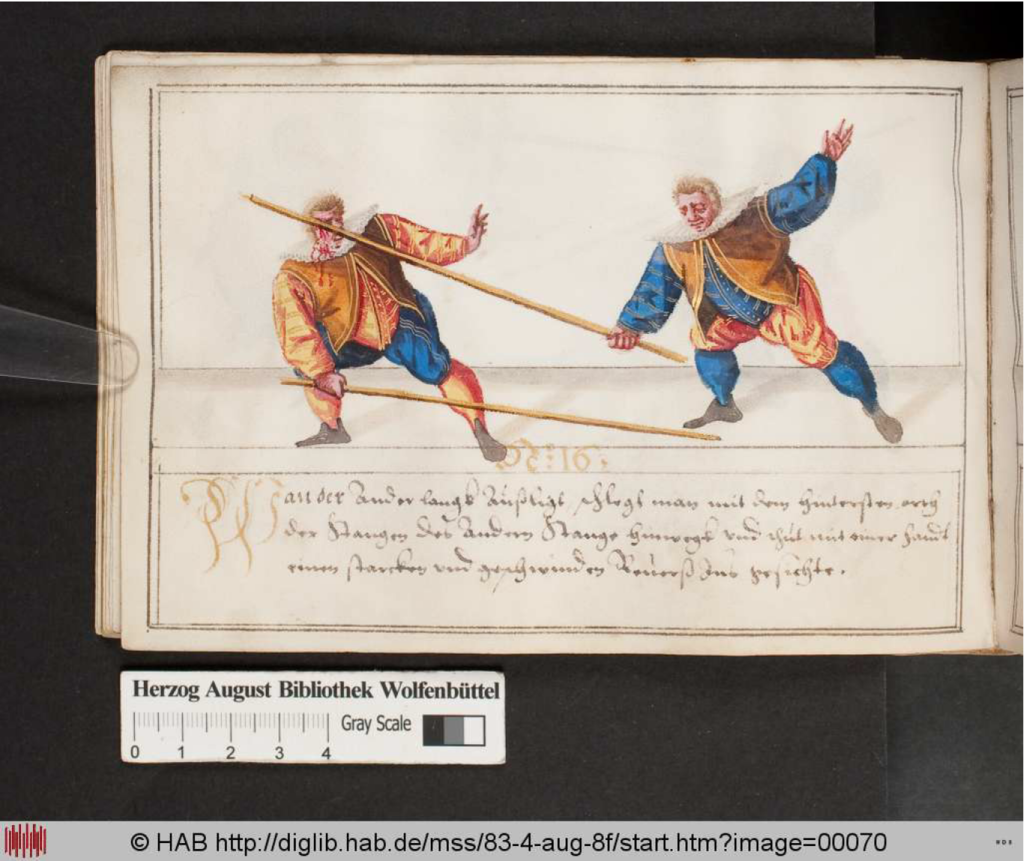 N: 16.
Wan der Ander langk Außligt, schlegt man mit dem hintersten orth
der Stangen des Andern Stange hinwegk vnd thut mit einer handt
einen starcken vnd geschwinden Reuerß Ins gesichte.
Herzog August Bibliothek Wolfenbüttel
Gray Scale
0 1 2 3 4
© HAB http://diglib.hab.de/mss/83-4-aug-8f/start.htm?image=00070